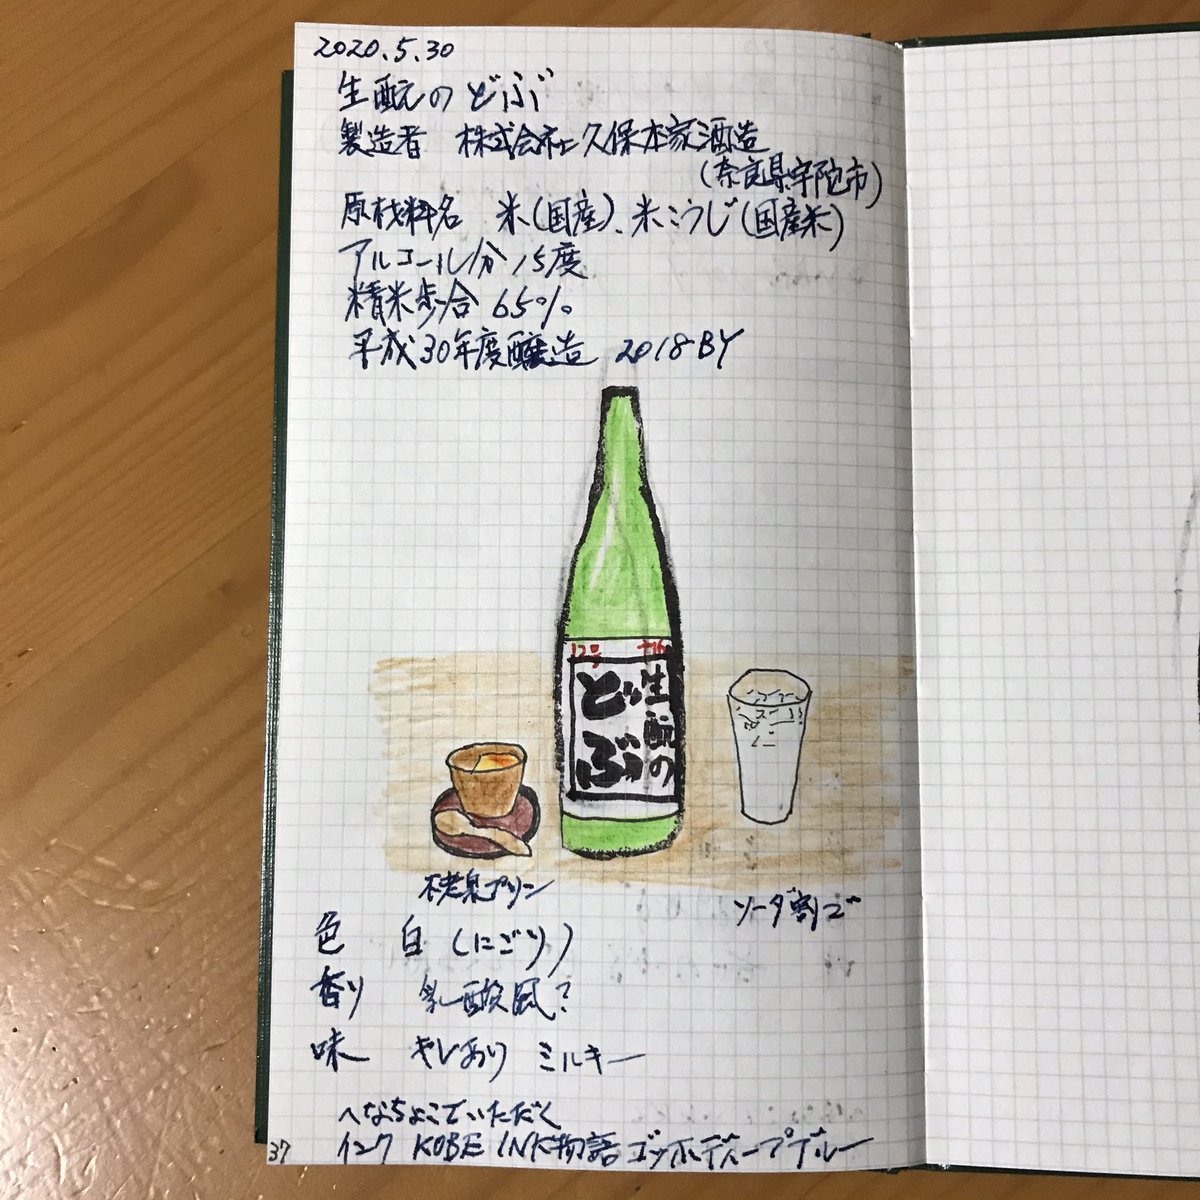 2020.5.30
生酛のどぶ
製造者 株式会社久保本家酒造
(奈良県宇陀市)
原材料名 米(国産)、米こうじ(国産米)
アルコール分 15度
精米歩合 65%
平成30年度醸造 2018BY
12号
生酛の
どぶ
不老泉プリン
ソーダ割りで
色 白(にごり)
香り 乳酸風?
味 キレあり ミルキー
へなちょこでいただく
インク KOBE INK物語 ゴッホディープブルー
37